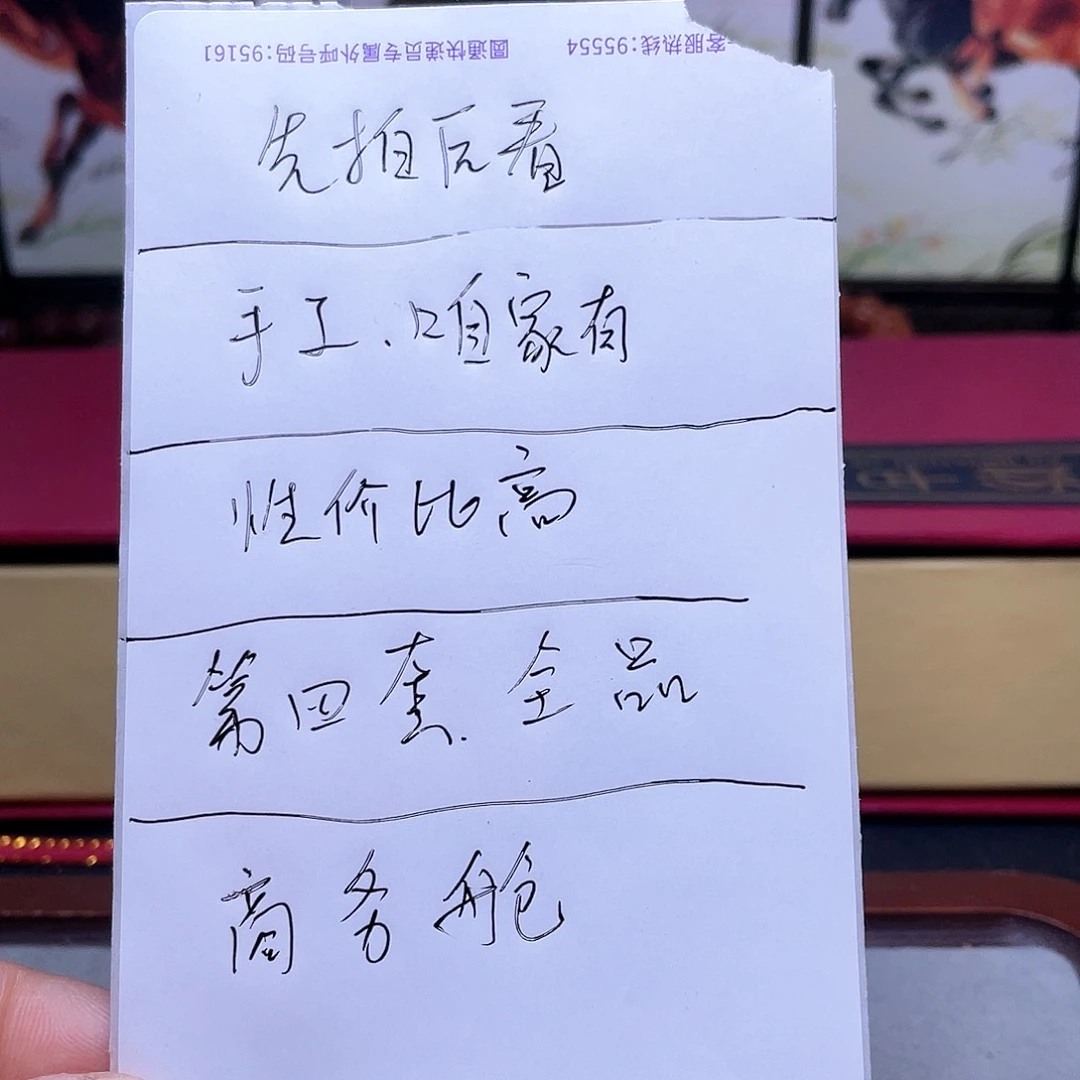 客服热线:95554 圆通快递员专属外呼号码:95161
先拍后看
手工、咱家有
性价比高
第四套.全品
商务舱